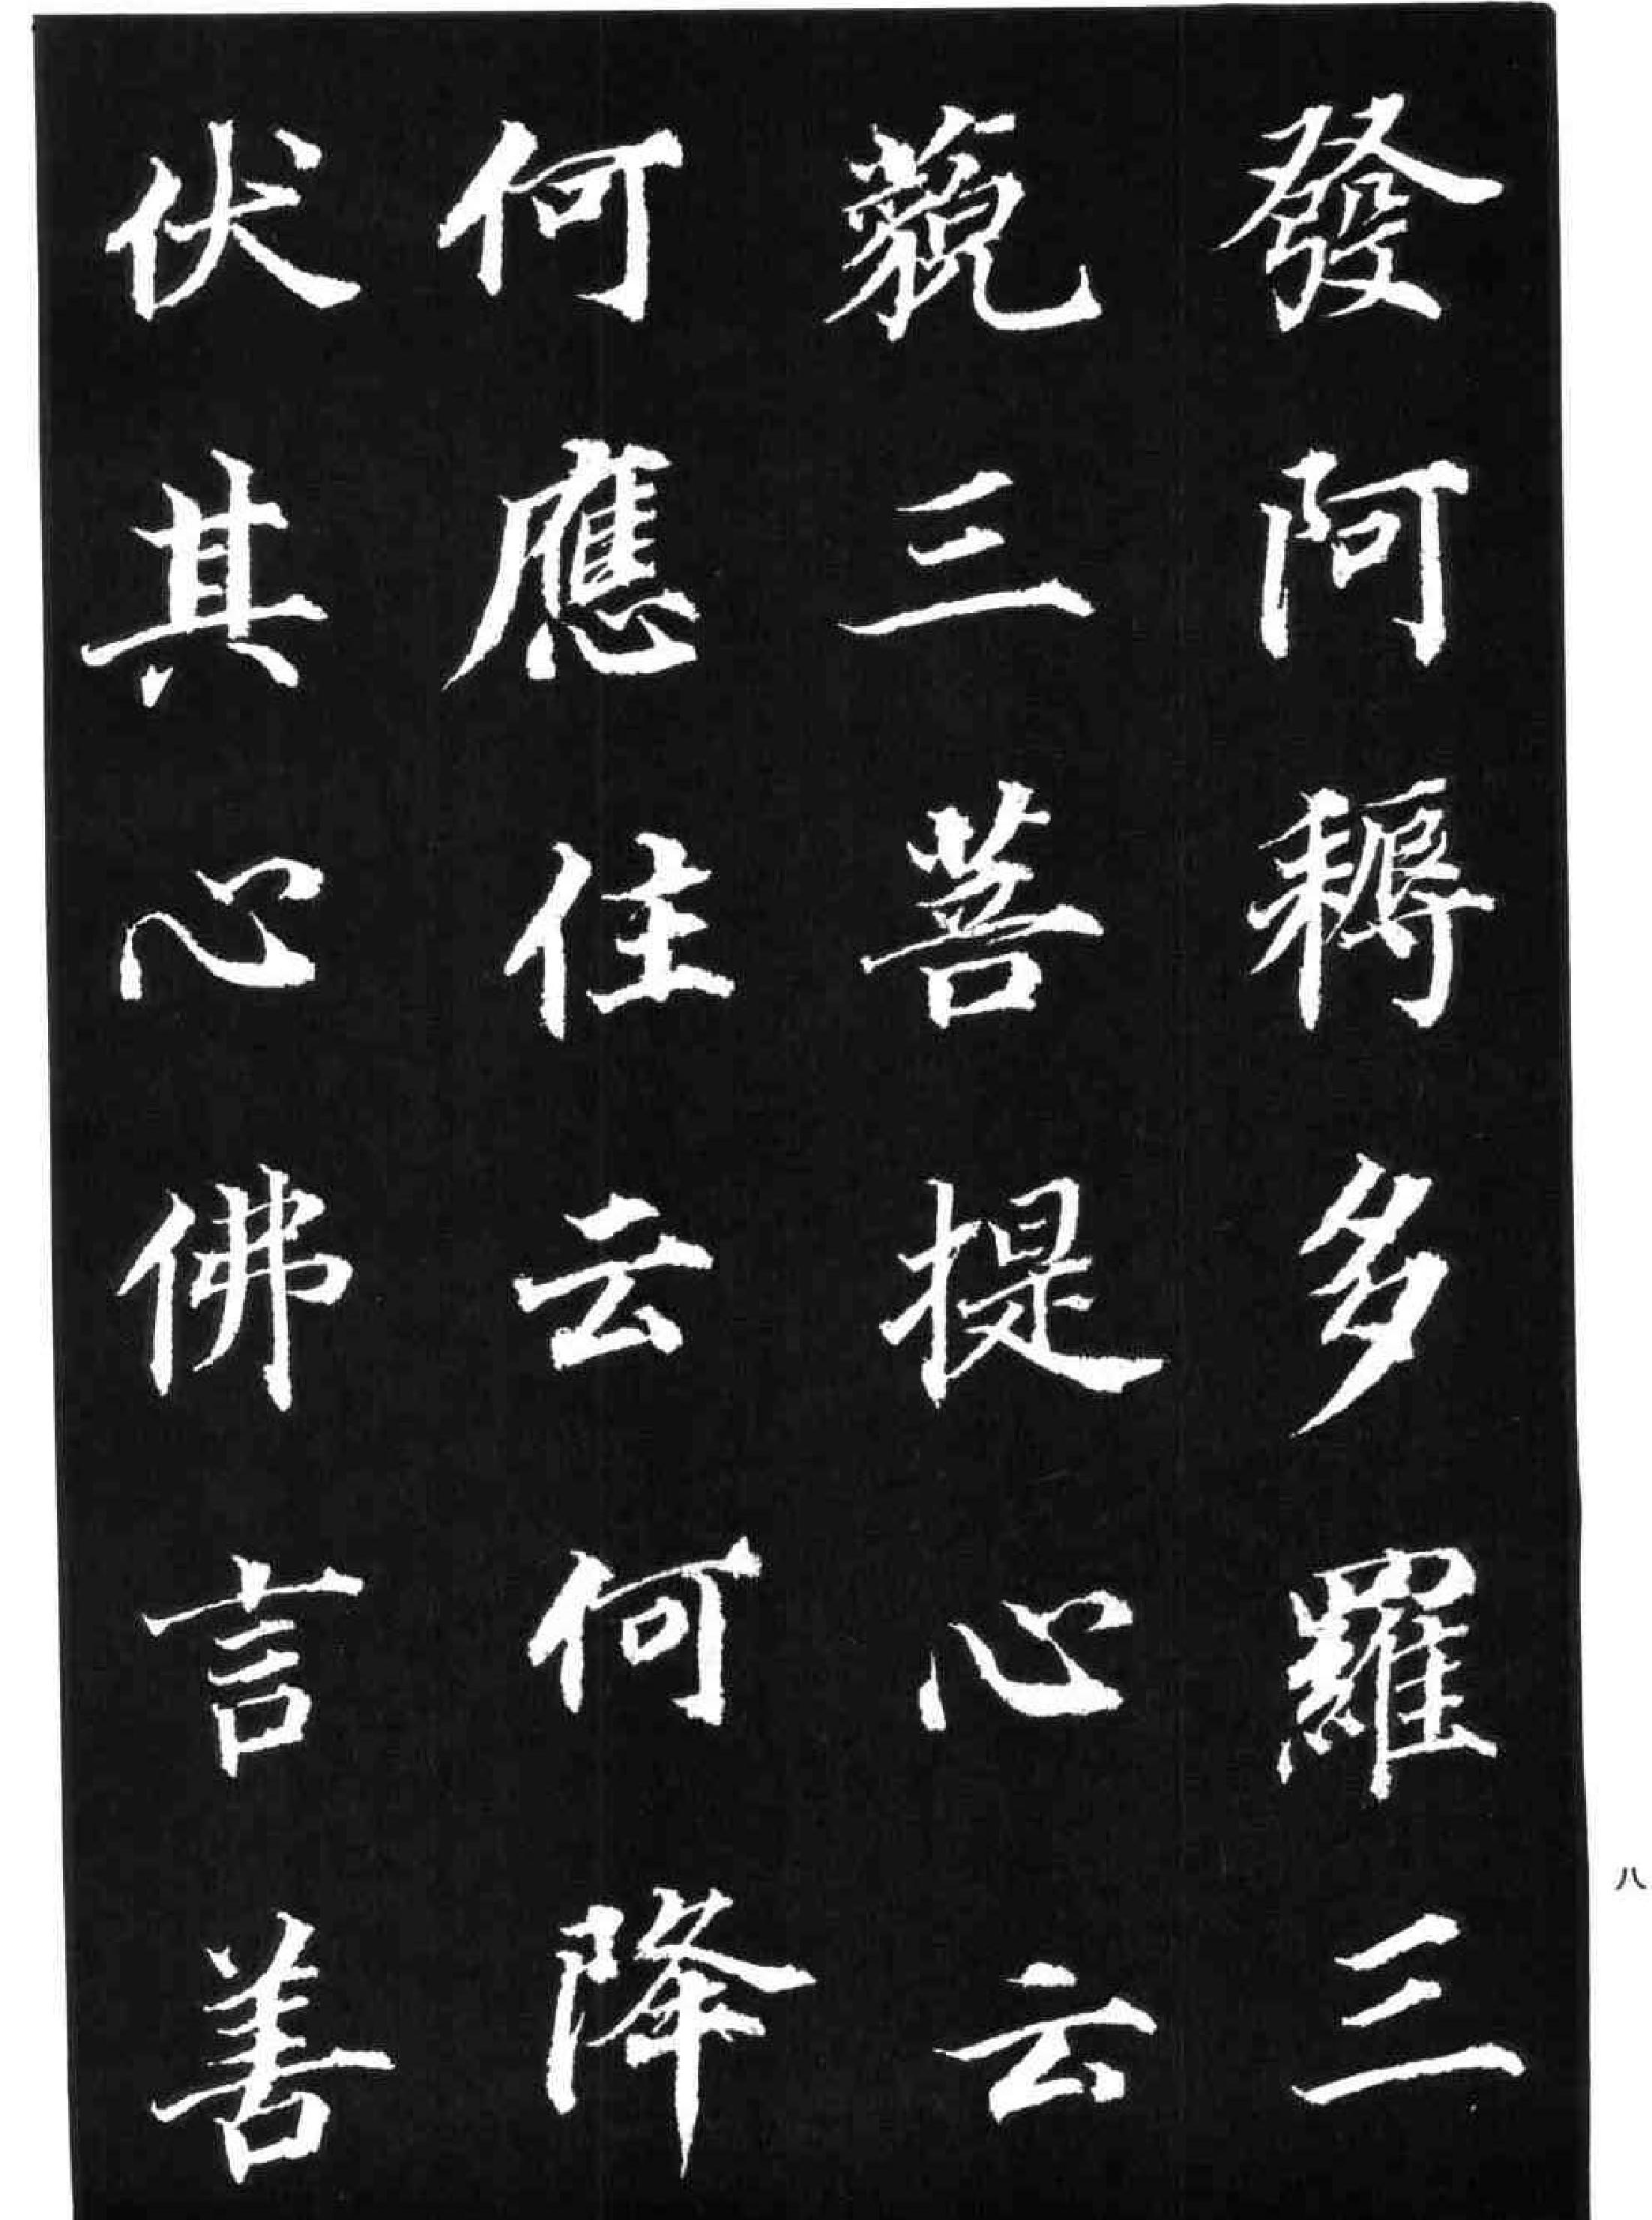 發阿耨多羅三
藐三菩提心云
何應住云何降
伏其心佛言善
八